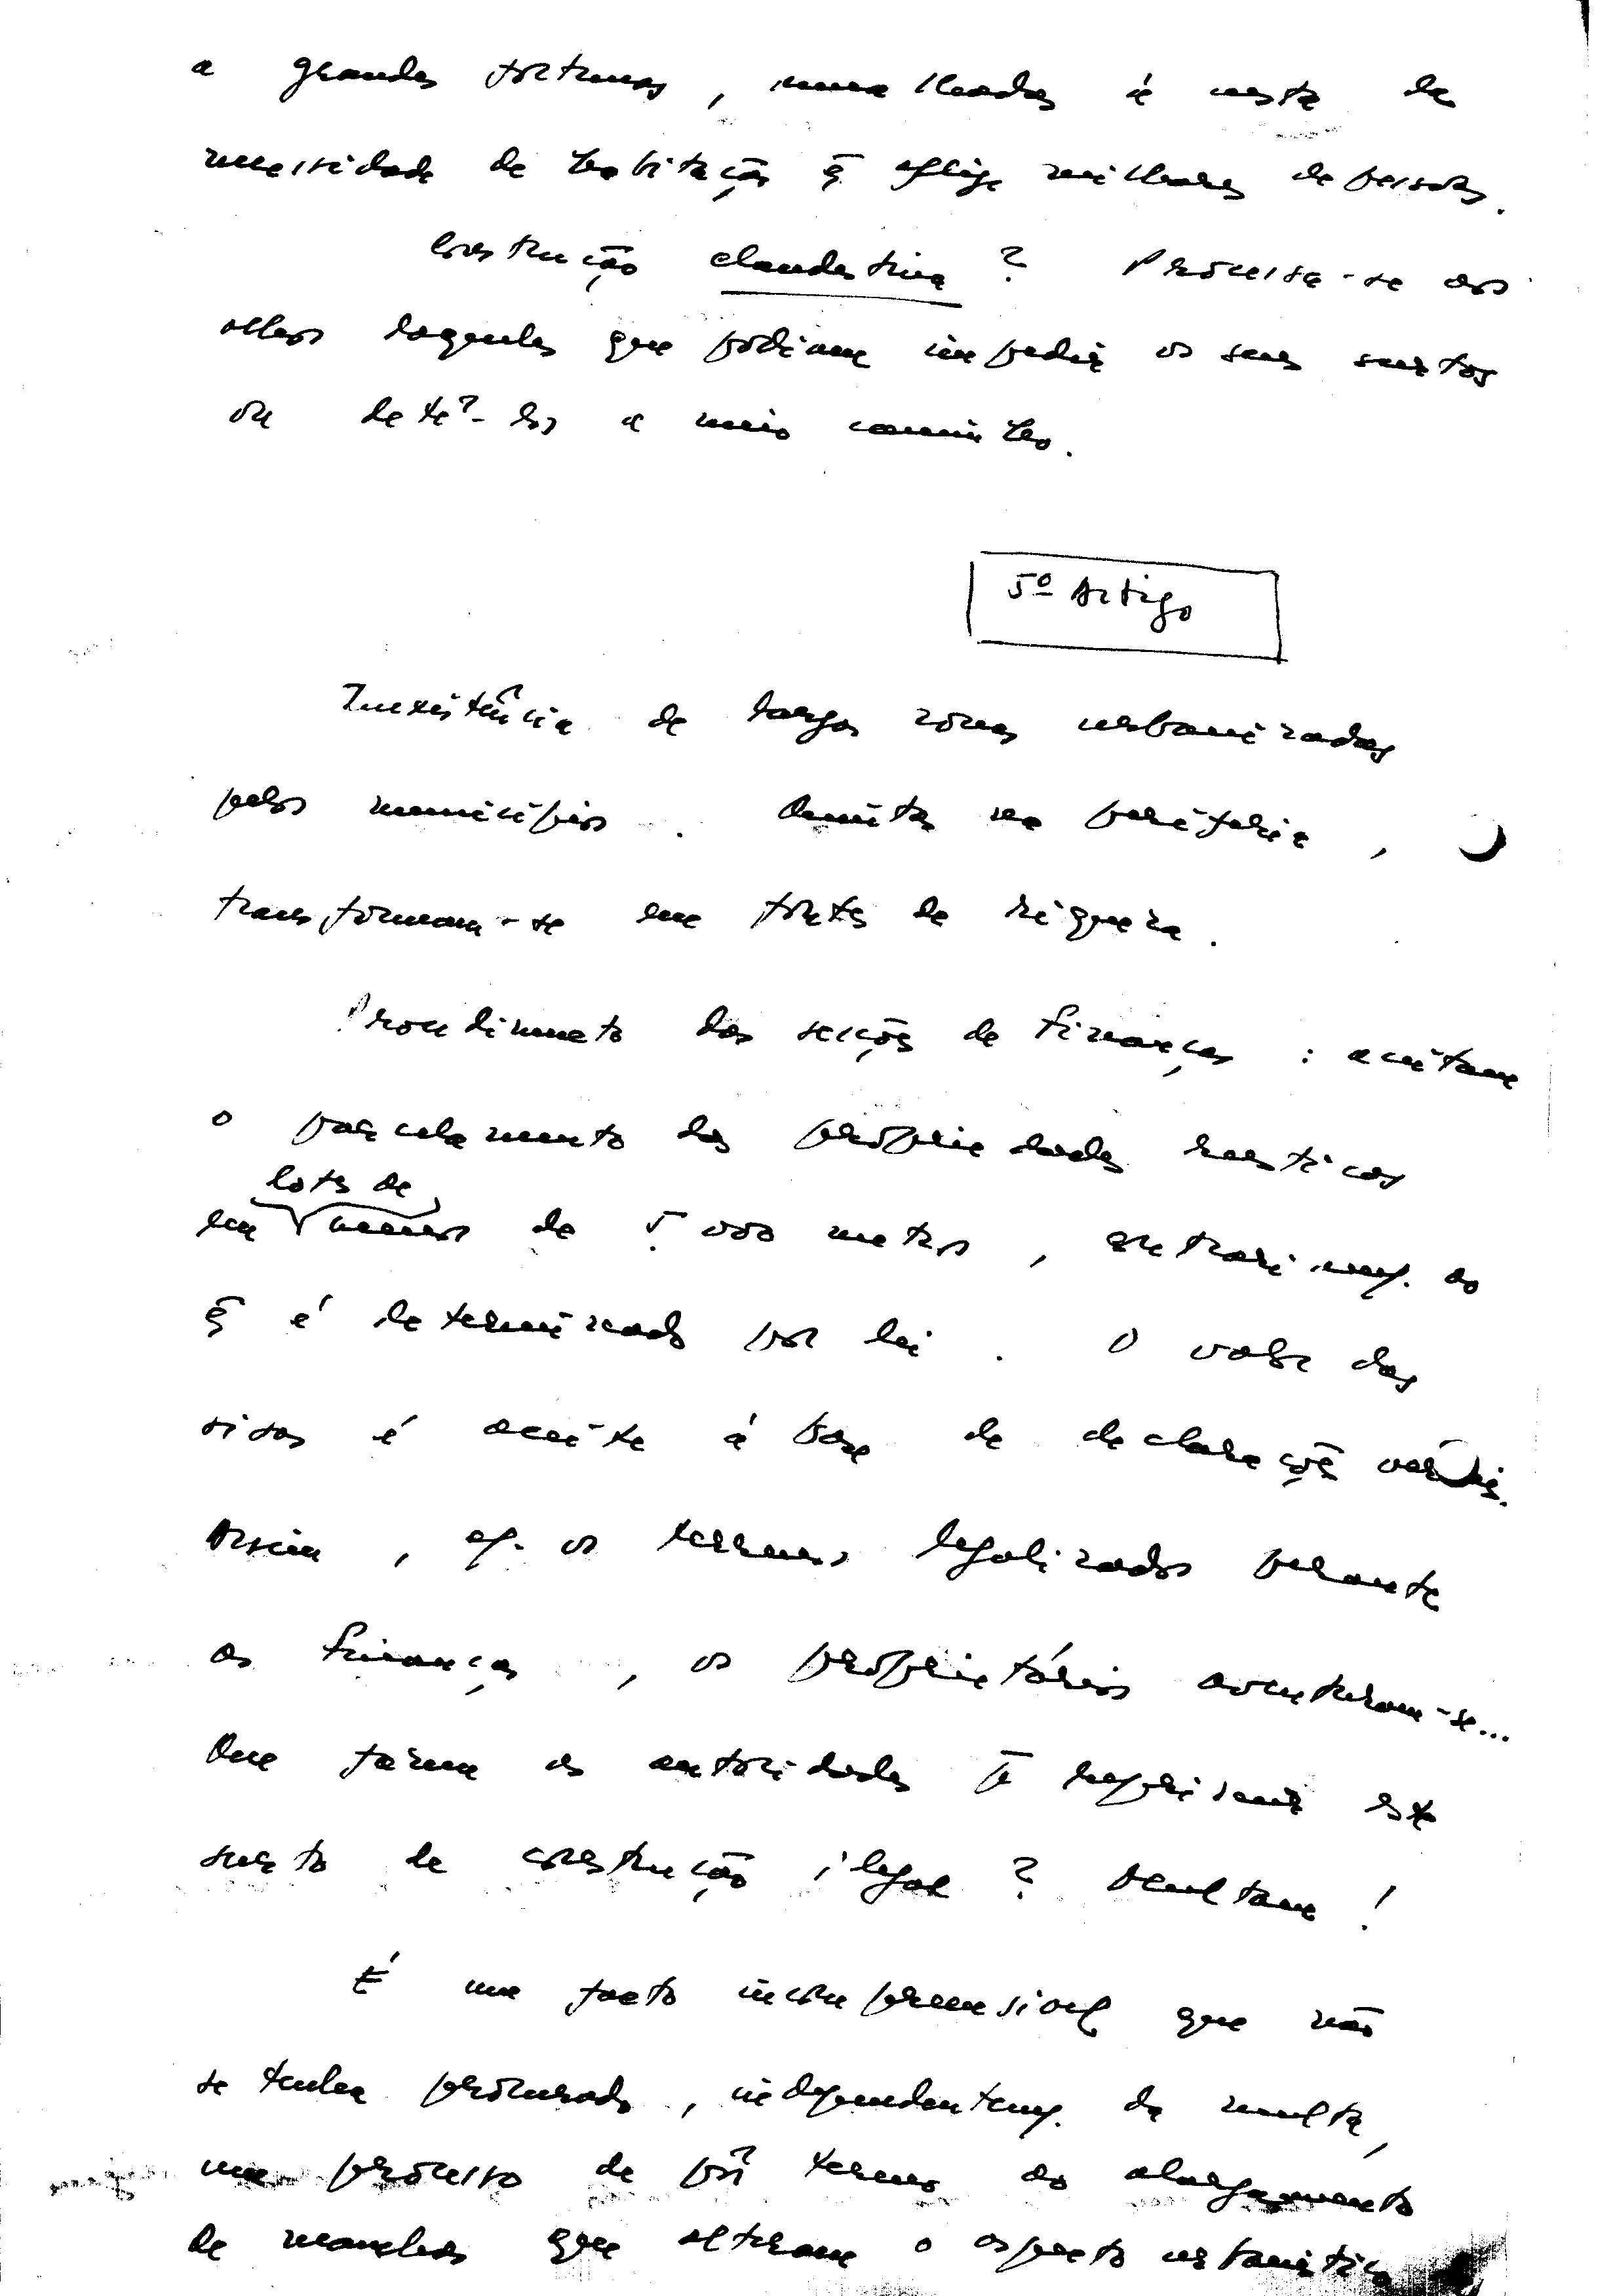 a grandes fortunas, amealhadas à custa da
necessidade de habitação q̃ aflige milhares de pessoas.
Construção clandestina? Processa-se aos
olhos daqueles que podiam impedir os seus surtos
ou detê-los a meio caminho.
5º Artigo
Inexistência de largas zonas urbanizadas
pelos municípios. Quintas na periferia,
transformam-se em fontes de riqueza.
Procedimento das secções de finanças: aceitam
o parcelamento das propriedades rústicas
lotes de
em menos de 5.000 metros, contrariamᵉ. ao
q̃ é determinado por lei. O valor das
sisas é aceite à base de declarações verbais.
Assim, c/. os terrenos legalizados perante
as finanças, os proprietários aventuram-se...
Que fazem as autoridades p̄ reprimir este
surto de construção ilegal? Multam!
É um facto incompreensível que não
se tenha procurado, independentemᵉ. da multa,
um processo de pôr termo ao alargamento
de manchas que alteram o aspecto urbanístico